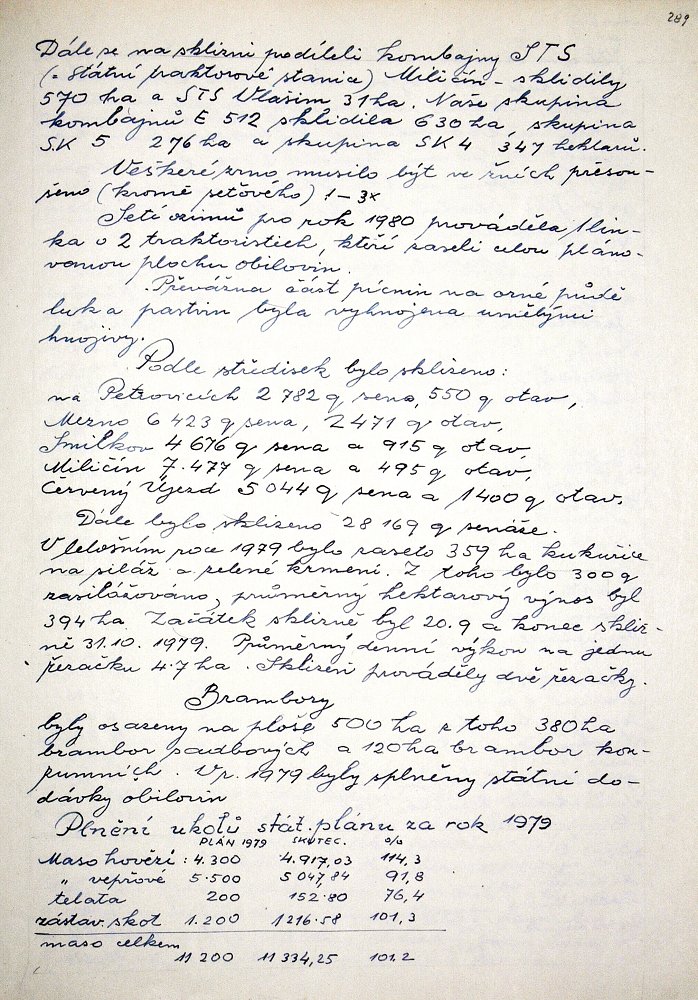 289
Dále se na sklizni podíleli kombajny STS
(= Státní traktorové stanice) Miličín - sklidily
570 ha a STS Vlašim 31 ha. Naše skupina
kombajnů E 512 sklidila 630 ha, skupina
S.K 5 276 ha a skupina SK 4 347 hektarů.
Veškeré zrno musilo být ve žních přesou-
šeno (kromě seťového) 1-3x
Setí ozimů pro rok 1980 prováděla 1 lin-
ka o 2 traktoristech, kteří zaseli celou pláno-
vanou plochu obilovin.
Převážna část pícnin na orné půdě
luk a pastvin byla vyhnojena umělými
hnojivy.
Podle středisek bylo sklizeno:
na Petrovicích 2 782 q sena, 550 q otav,
Mezno 6 423 q sena, 2 471 q otav,
Smilkov 4 676 q sena a 915 q otav,
Miličín 7.477 q sena a 495 q otav,
Červený Újezd 5 044 q sena a 1400 q otav.
Dále bylo sklizeno 28 169 q senáže.
V letošním roce 1979 bylo zaseto 359 ha kukuřice
na siláž a zelené krmení. Z toho bylo 300 q
zasilážováno, průměrný hektarový výnos byl
394 ha. Začátek sklizně byl 20.9 a konec skliz-
ně 31.10. 1979. Průměrný denní výkon na jednu
řezačku 4.7 ha. Sklizeň prováděly dvě řezačky.
Brambory
byly osazeny na ploše 500 ha z toho 380 ha
brambor sadbových a 120 ha brambor kon-
zumních. V r. 1979 byly splněny státní do-
dávky obilovin
Plnění úkolů stát. plánu za rok 1979
PLÁN 1979 SKUTEC. o/o
Maso hovězí : 4.300 4.917,03 114,3
" vepřové 5.500 5 047,84 91,8
telata 200 152.80 76,4
zástav. skot 1.200 1216.58 101,3
maso celkem
11 200 11 334,25 101.2